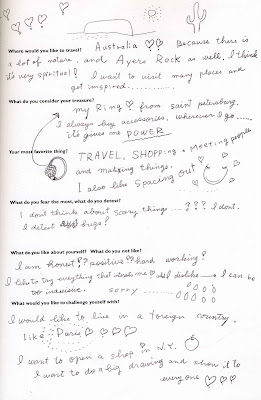 Where would you like to travel?
Australia Because there is
a lot of nature, and Ayers Rock as well, I think
it's very spiritual! I want to visit many places and
get inspired............
What do you consider your treasure?
my Ring from saint petersburg.
I always buy accessories, wherever I go......
its gives me POWER
Your most favorite thing?
TRAVEL, SHOPPING, Meeting people
and making things.
I also like spacing out
What do you fear the most, what do you detest?
I dont thinks about scary things .....??? I dont.
I detest bugs?
What do you like about yourself? What do you not like?
I am honest!? positive?? hard working?
I like to try everything that interests me I dislike ..... I can be
too indecisive. sorry
What would you like to challenge yoself with?
I would like to live in a foreign country.
like Paris
I want to open a shop in N.Y.
I want to do a big drawing and show it to
everyone